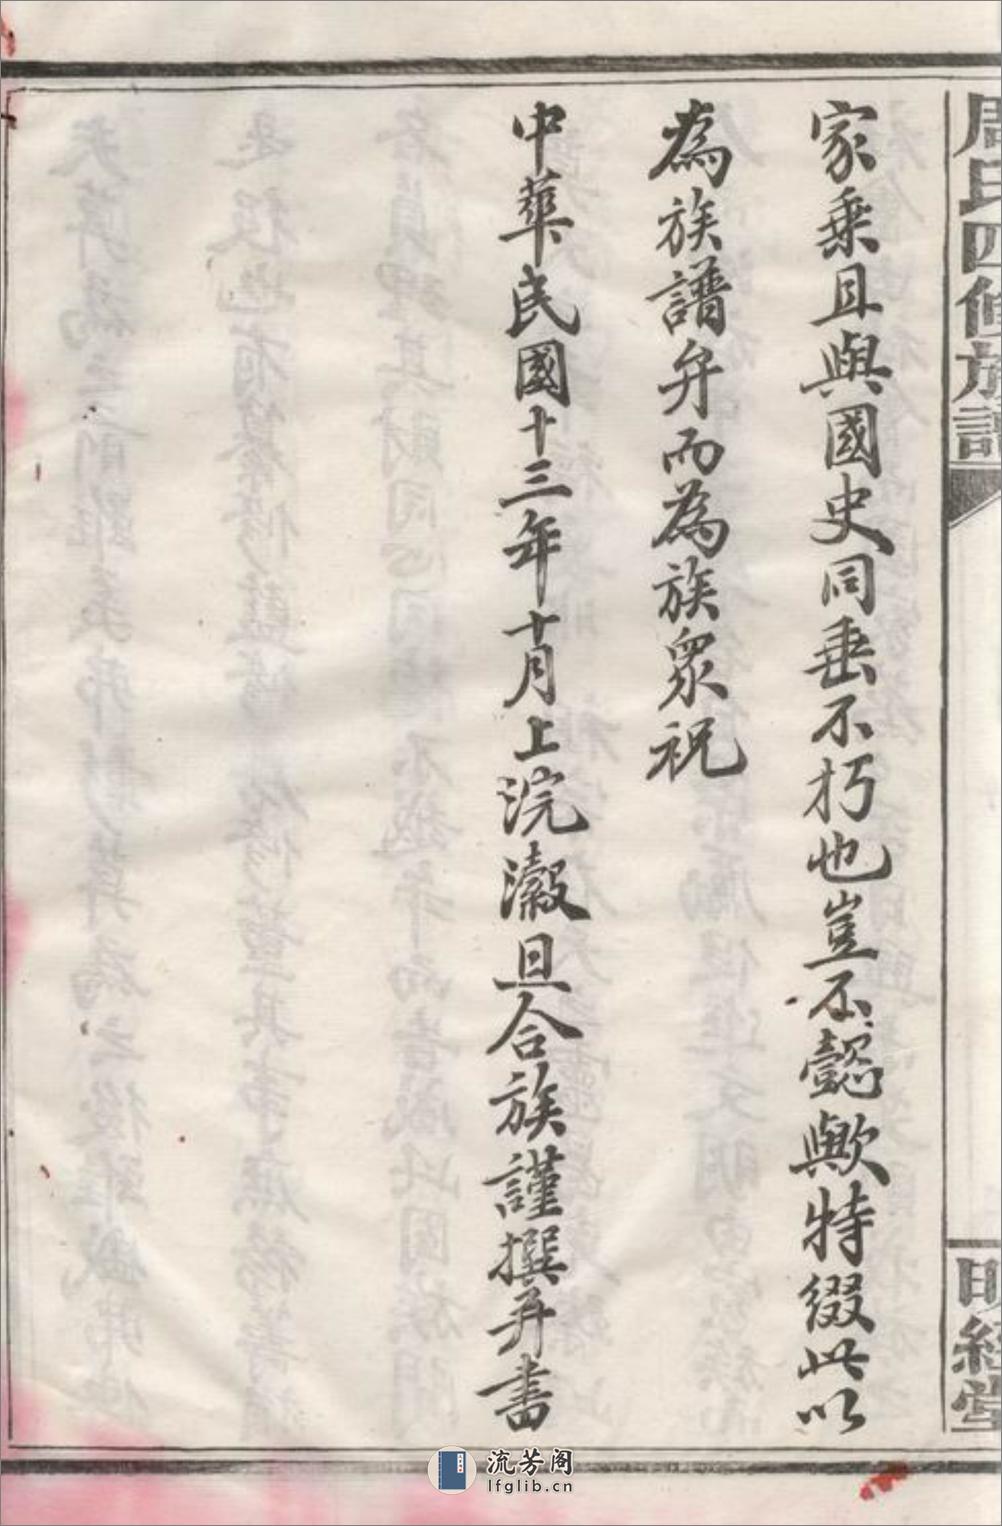 周氏四修族譜
明經堂
家乘且與國史同垂不朽也豈不懿歟特綴此以
為族譜弁而為族眾祝
中華民國十三年十月上浣瀔旦合族謹撰并書
流芳阁
lfglib.cn